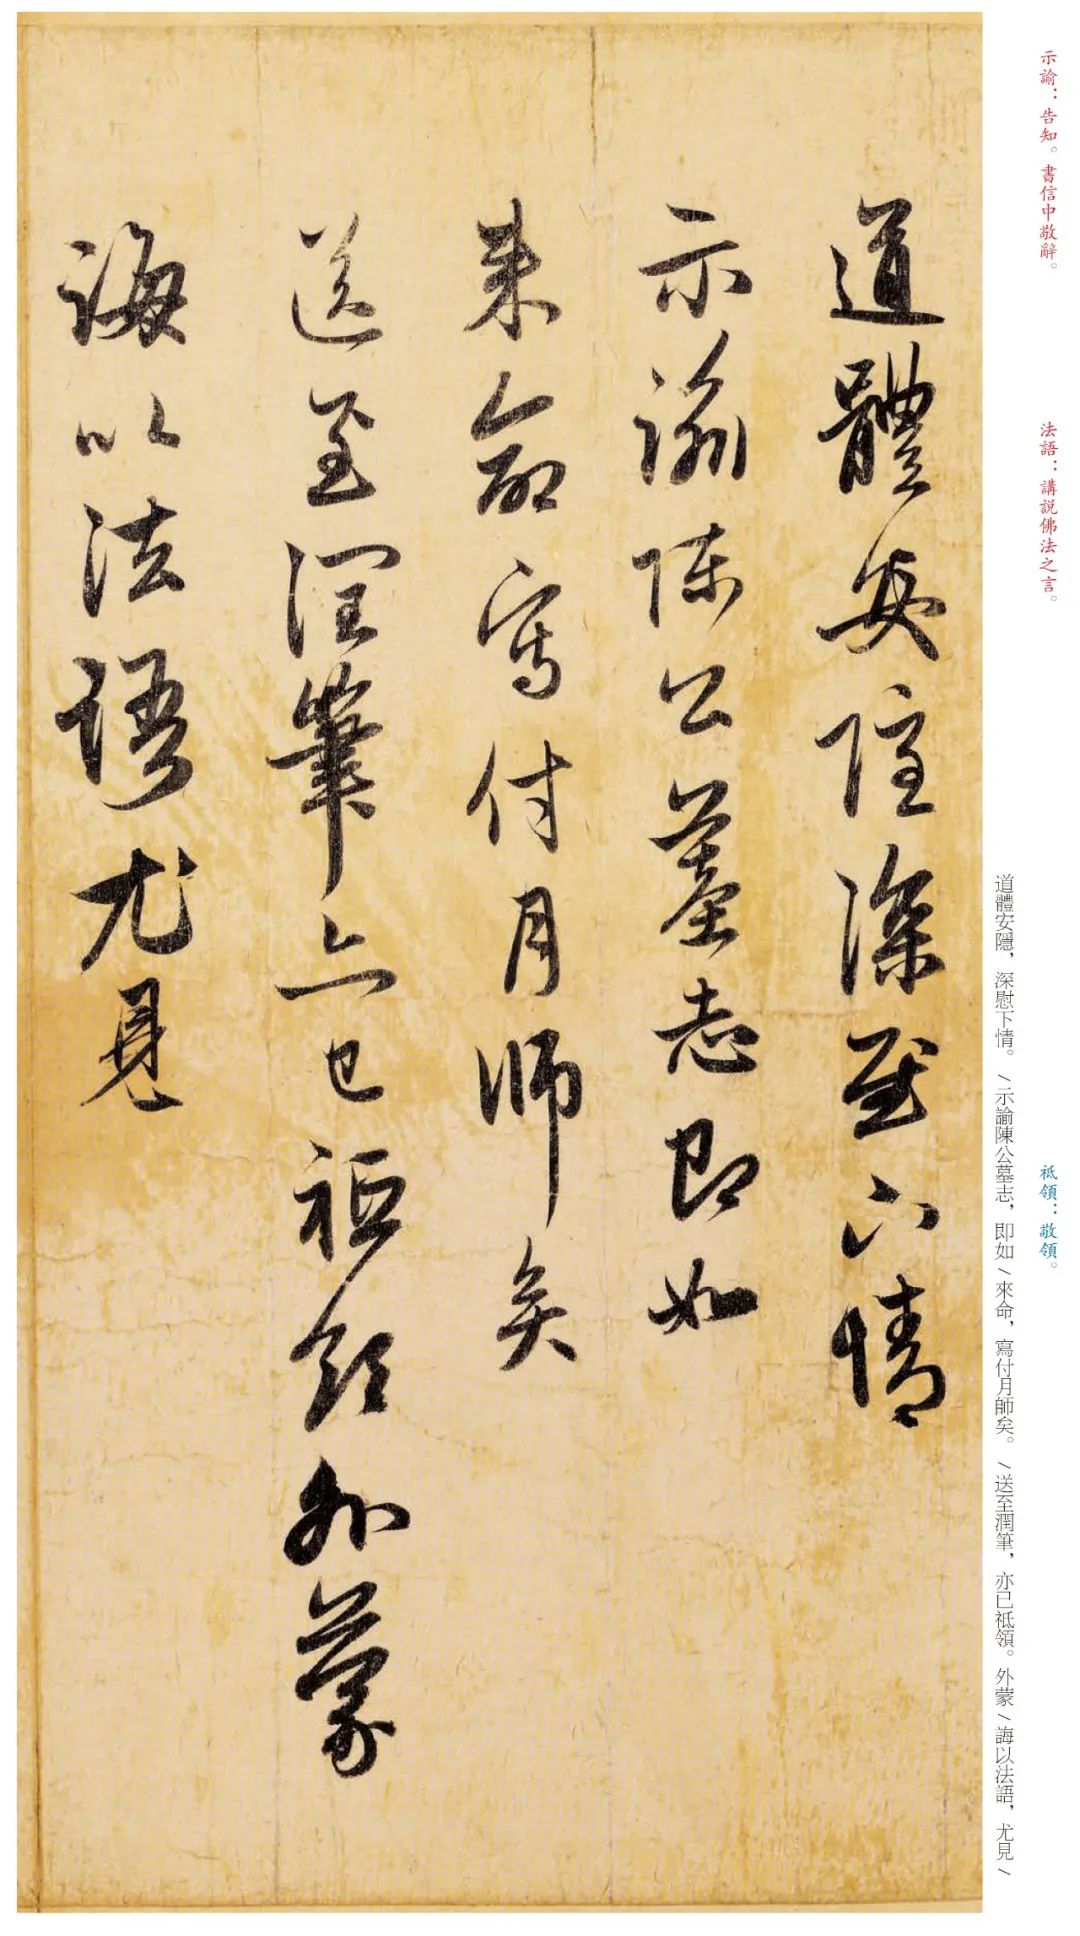 示諭：告知。書信中敬辭。
法語：講説佛法之言。
祗領：敬領。
道體安隱，深慰下情。/示諭陳公墓志，即如/來命，寫付月師矣。/送至潤筆，亦已祗領。外蒙/誨以法語，尤見/
道體安隱深慰下情
示諭陳公墓志即如
来命寫付月師矣
送至潤筆亦已祗領外蒙
誨以法語尤見